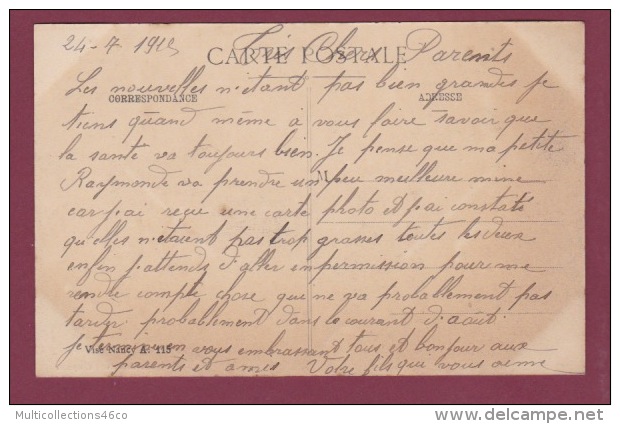 24-7 1915 Très Chers Parents
CARTE POSTALE
Les nouvelles n'étant pas bien grandes je
CORRESPONDANCE ADRESSE
tiens quand même à vous faire savoir que
la santé va toujours bien. Je pense que ma petite
Raymonde va prendre un peu meilleure mine
car j'ai reçu une carte photo et j'ai constaté
qu'elles n'étaient pas trop grasses toutes les deux
enfin j'attends d'aller en permission pour me
rendre compte chose qui ne va probablement pas
tarder probablement dans le courant d'août.
je termine en vous embrassant tous et bonjour aux
Visé Nancy A. 115
parents et amis Votre fils qui vous aime
Multicollections46co
delcampe.net